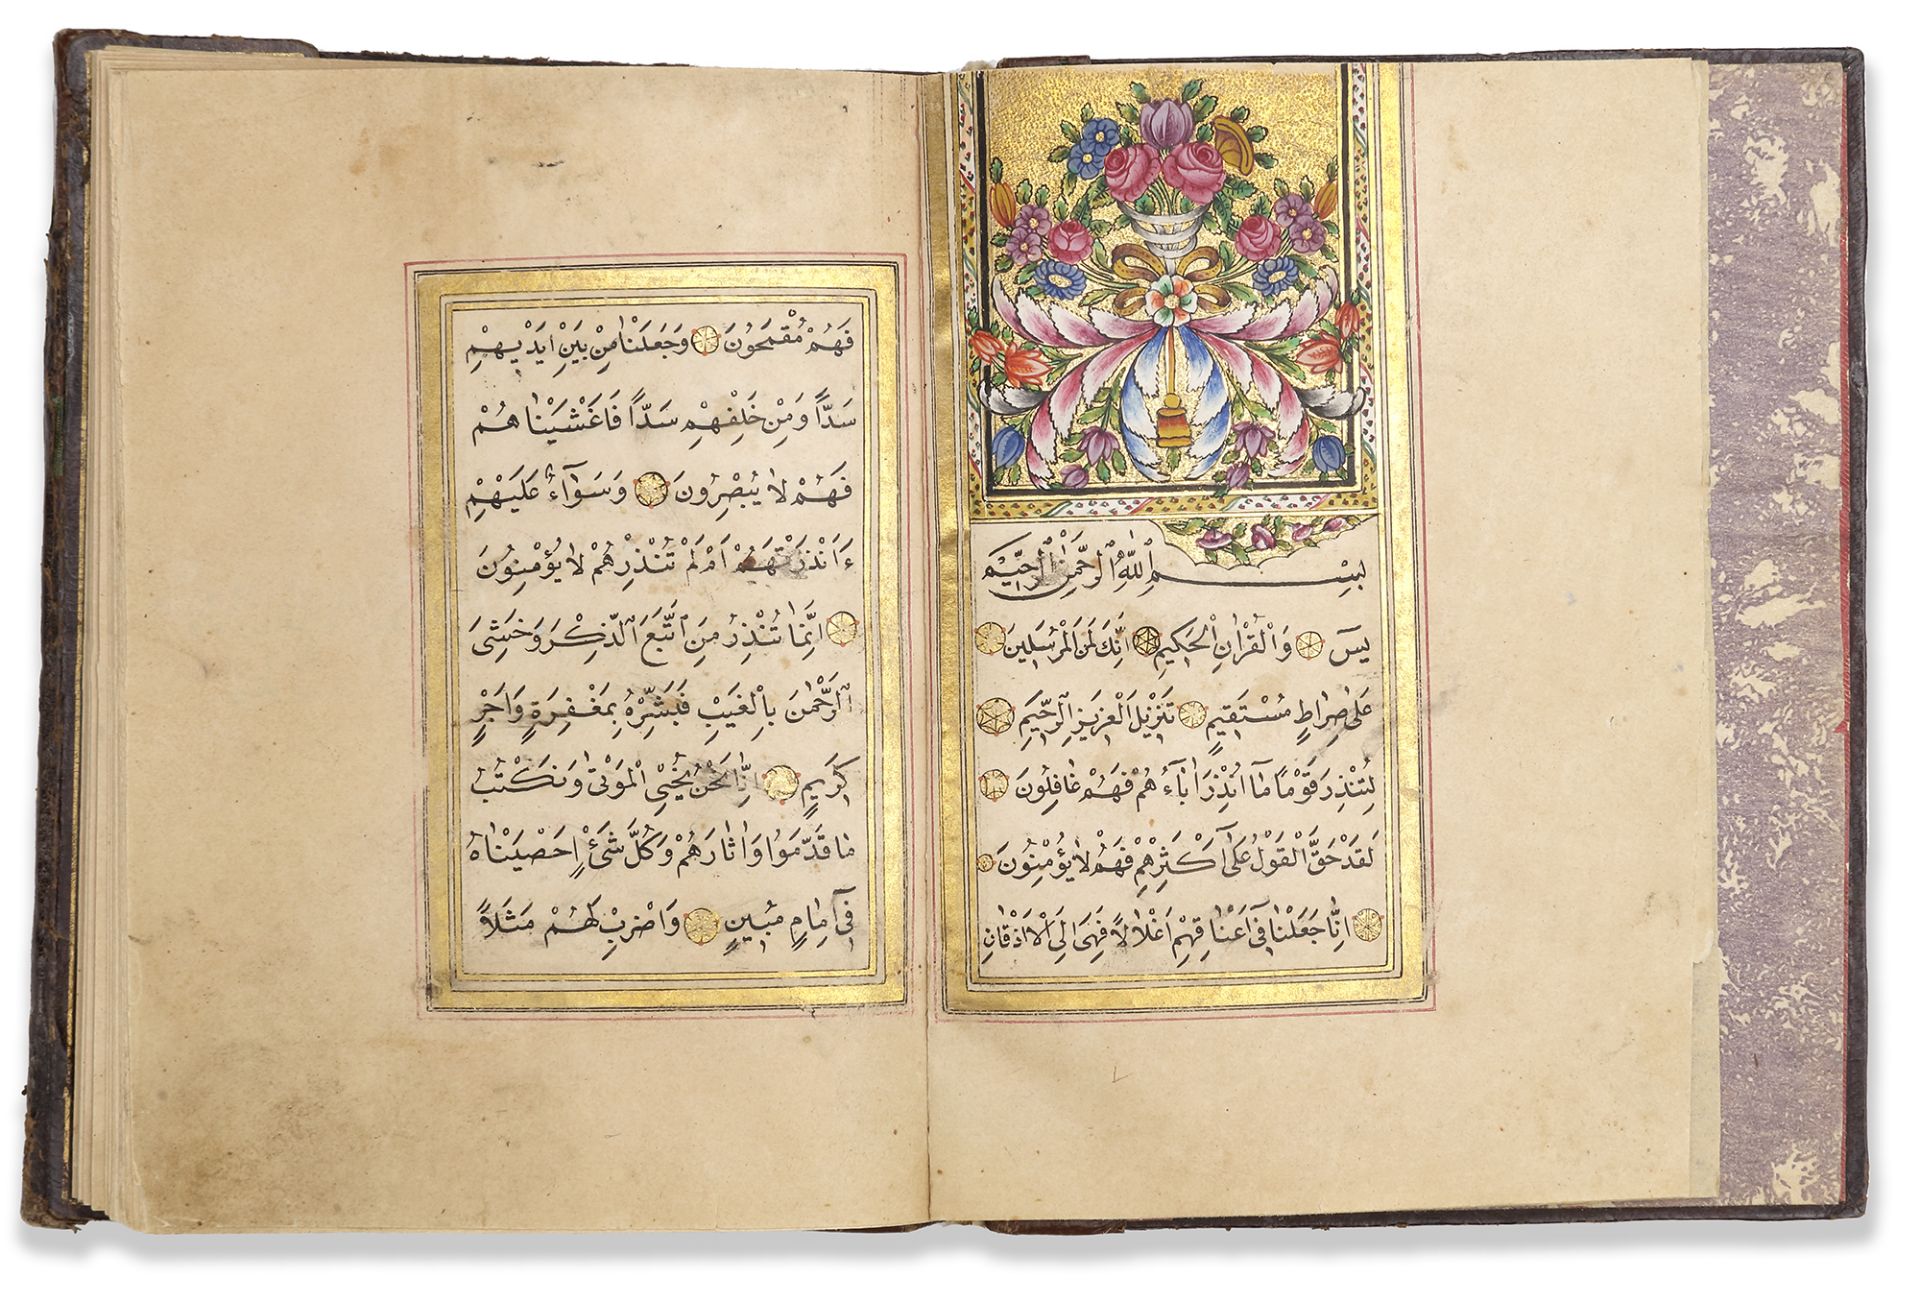 بِسْمِ ٱللّٰهِ ٱلرَّحْمٰنِ ٱلرَّحِيمِ
يٰسٓ وَالْقُرْاٰنِ الْحَكِيمِ اِنَّكَ لَمِنَ الْمُرْسَلِينَ
عَلٰى صِرَاطٍ مُسْتَقِيمٍ تَنْزِيلَ الْعَزِيزِ الرَّحِيمِ
لِتُنْذِرَ قَوْمًا مَآ اُنْذِرَ اٰبَآءُهُمْ فَهُمْ غَافِلُونَ
لَقَدْ حَقَّ الْقَوْلُ عَلٰٓى اَكْثَرِهِمْ فَهُمْ لَا يُؤْمِنُونَ
اِنَّا جَعَلْنَا فِىٓ اَعْنَاقِهِمْ اَغْلَالًا فَهِىَ اِلَى الْاَذْقَانِ
فَهُمْ مُقْمَحُونَ وَجَعَلْنَا مِنْ بَيْنِ اَيْدِيهِمْ
سَدًّا وَمِنْ خَلْفِهِمْ سَدًّا فَاَغْشَيْنَاهُمْ
فَهُمْ لَا يُبْصِرُونَ وَسَوَآءٌ عَلَيْهِمْ
ءَاَنْذَرْتَهُمْ اَمْ لَمْ تُنْذِرْهُمْ لَا يُؤْمِنُونَ
اِنَّمَا تُنْذِرُ مَنِ ٱتَّبَعَ ٱلذِّكْرَ وَخَشِىَ
ٱلرَّحْمٰنَ بِالْغَيْبِ فَبَشِّرْهُ بِمَغْفِرَةٍ وَاَجْرٍ
كَرِيمٍ اِنَّا نَحْنُ نُحْيِى الْمَوْتٰى وَنَكْتُبُ
مَا قَدَّمُوا وَاٰثَارَهُمْ وَكُلَّ شَىْءٍ اَحْصَيْنَاهُ
فِىٓ اِمَامٍ مُبِينٍ وَاضْرِبْ لَهُمْ مَثَلًا